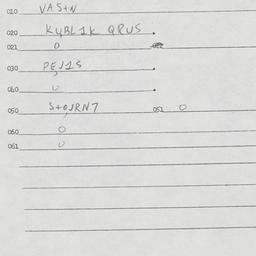 010 VAS+N
020 KYBL1K QRUS .
021 0
030 PEJ1S
040 0 .
050 S+OJRN7 051 0
060 0
061 0